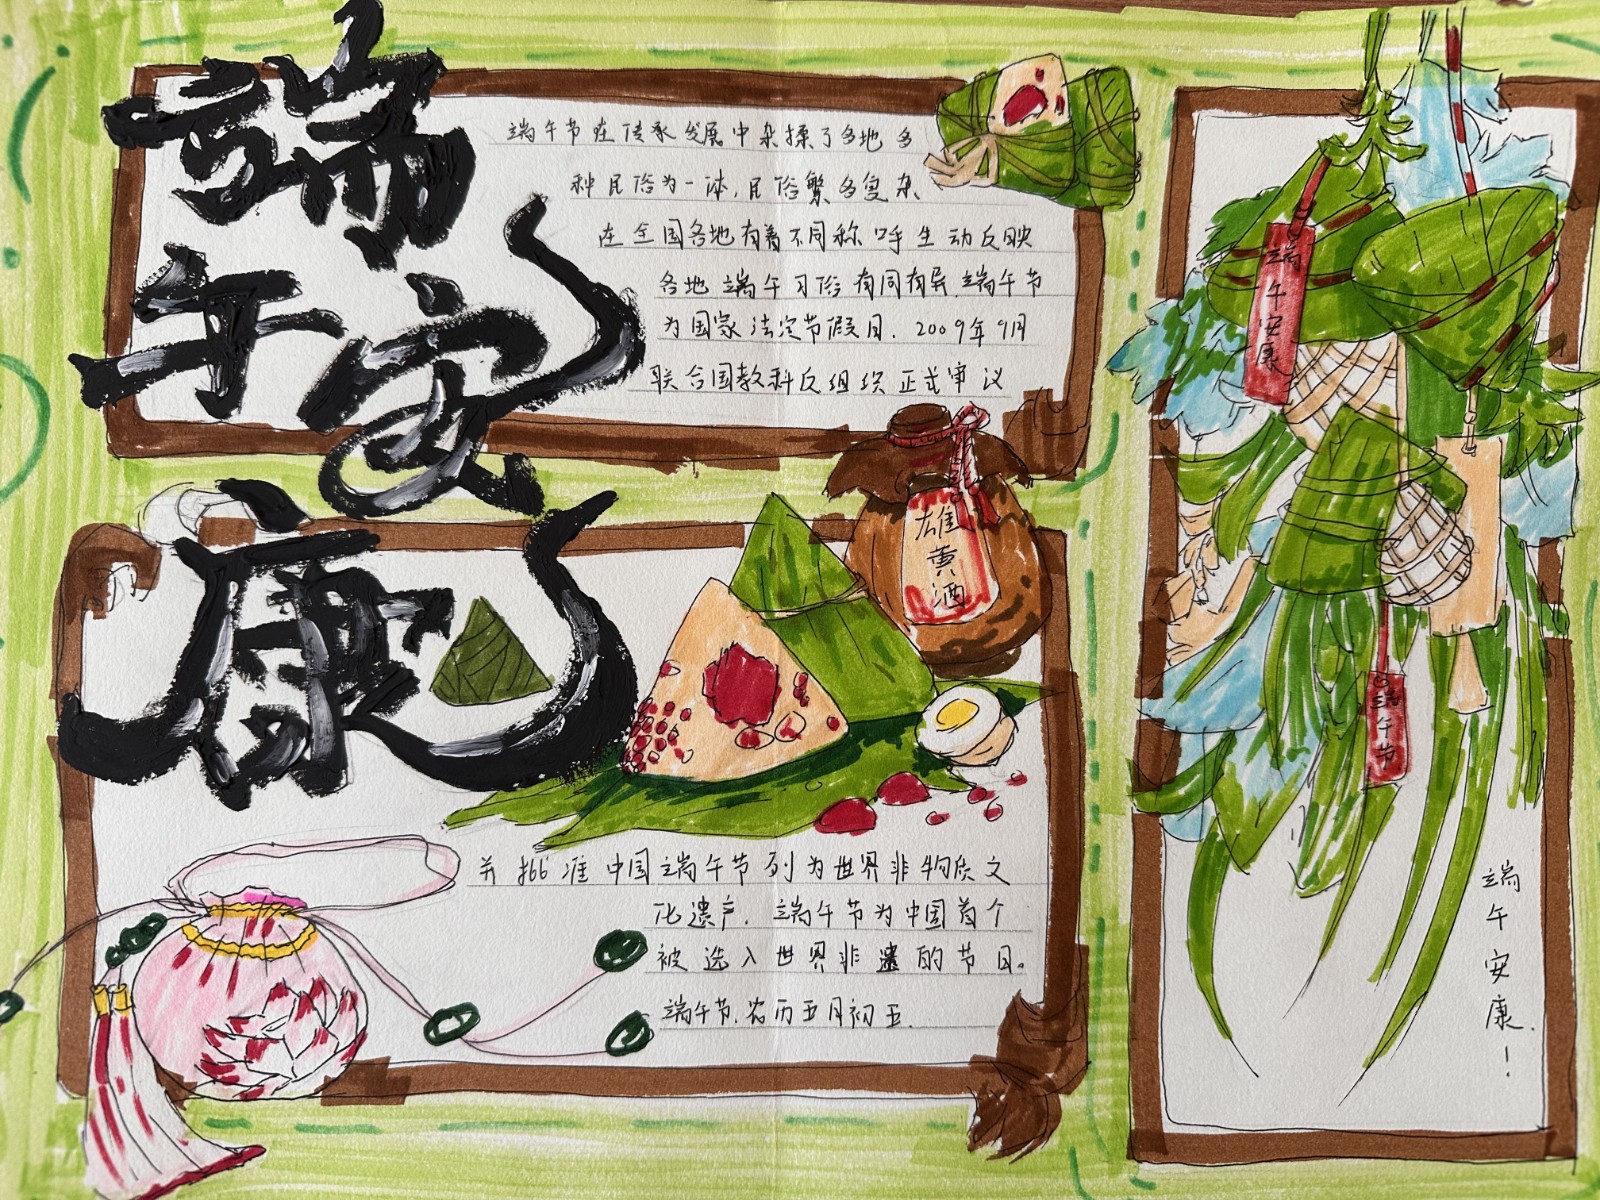 端午安康
端午节在传承发展中杂揉了多地多
种民俗为一体,民俗繁多复杂
在全国各地有着不同称呼生动反映
各地端午习俗有同有异.端午节
为国家法定节假日.2009年9月
联合国教科文组织正式审议
雄黄酒
并批准中国端午节列为世界非物质文
化遗产.端午节为中国首个
被选入世界非遗的节日。
端午节.农历五月初五.
端午安康
端午节
端午安康.!